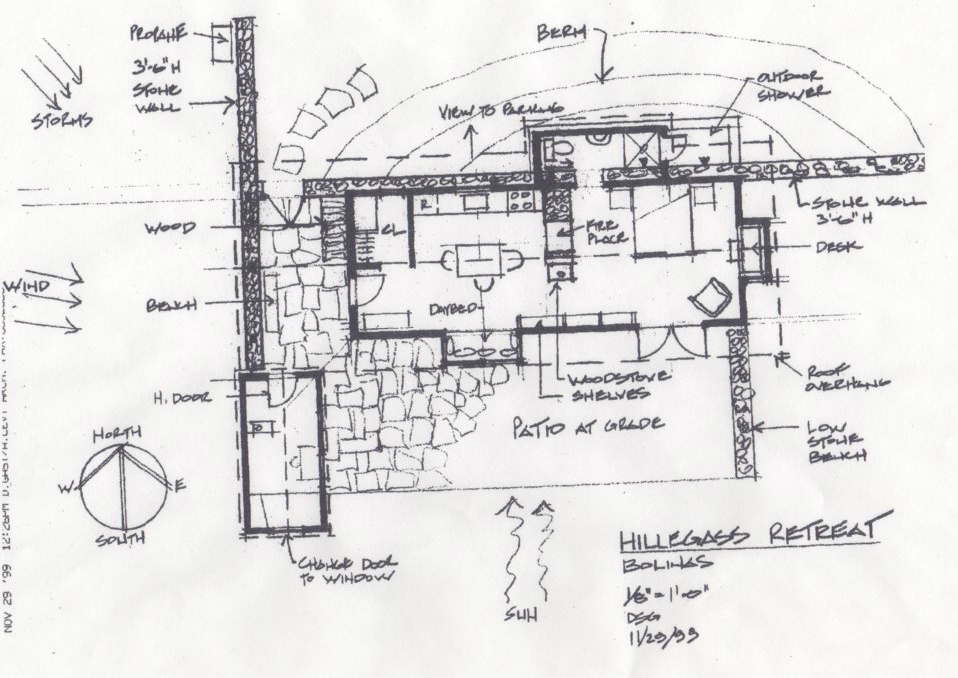 PROPANE
BERM
3'-6" H
STONE
WALL
OUTDOOR
SHOWER
STORMS
VIEW TO PARKING
STONE WALL
3'-6" H
WOOD
R
CL
FIRE
PLACE
DESK
WIND
BENCH
DAYBED
ROOF
OVERHANG
WOODSTOVE
SHELVES
H. DOOR
PATIO AT GRADE
LOW
STONE
BENCH
NORTH
W
E
SOUTH
CHANGE DOOR
TO WINDOW
SUN
HILLEGASS RETREAT
BOLINAS
1/8" = 1'-0"
DSG
11/29/99
NOV 29 '99 12:26PM